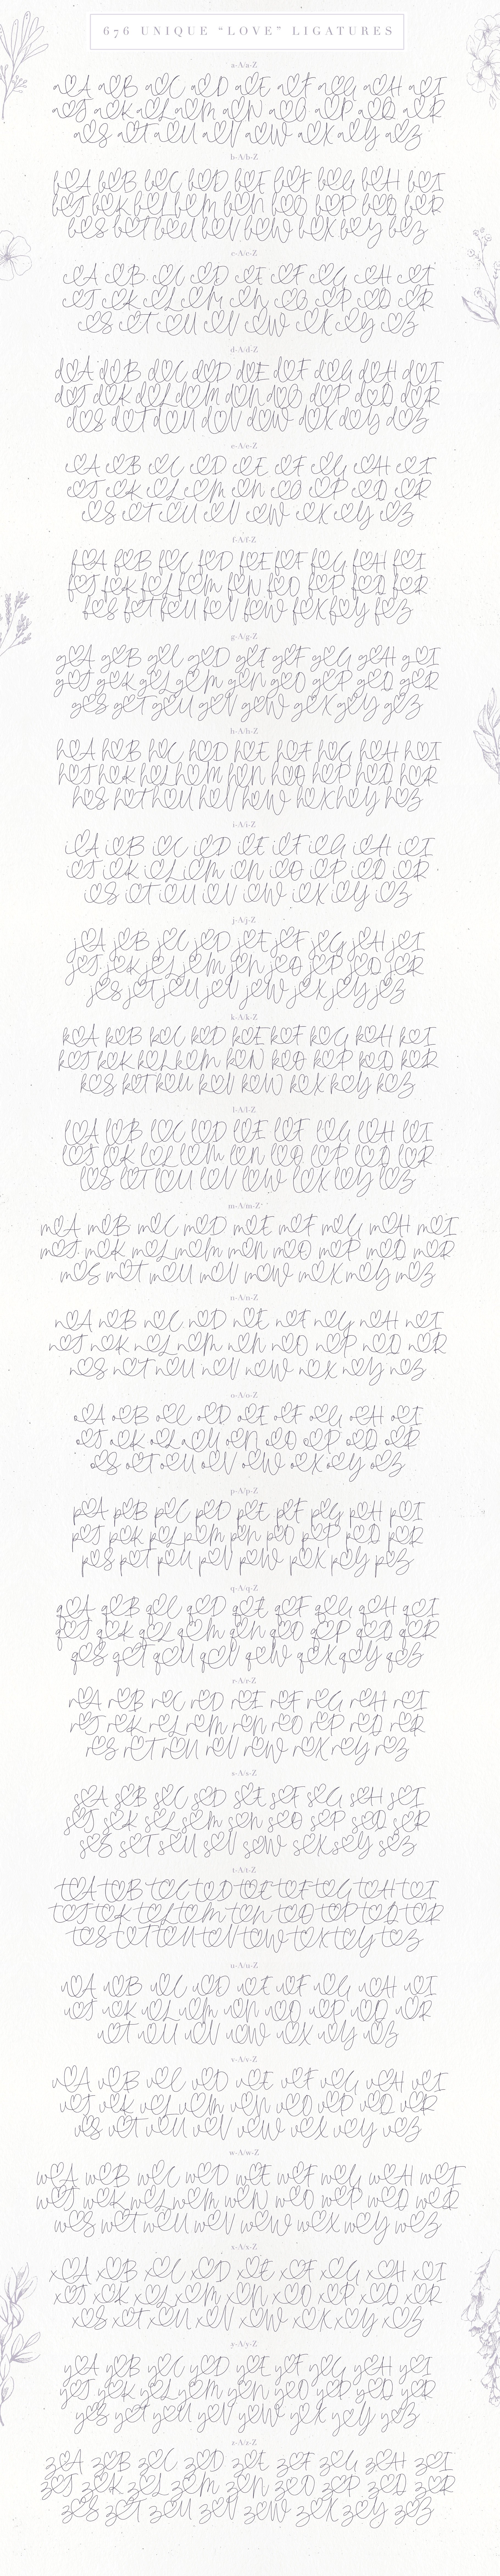 676 UNIQUE “LOVE” LIGATURES
a-A/a-Z
a♡A a♡B a♡C a♡D a♡E a♡F a♡G a♡H a♡I
a♡J a♡K a♡L a♡M a♡N a♡O a♡P a♡Q a♡R
a♡S a♡T a♡U a♡V a♡W a♡X a♡Y a♡Z
b-A/b-Z
b♡A b♡B b♡C b♡D b♡E b♡F b♡G b♡H b♡I
b♡J b♡K b♡L b♡M b♡N b♡O b♡P b♡Q b♡R
b♡S b♡T b♡U b♡V b♡W b♡X b♡Y b♡Z
c-A/c-Z
c♡A c♡B c♡C c♡D c♡E c♡F c♡G c♡H c♡I
c♡J c♡K c♡L c♡M c♡N c♡O c♡P c♡Q c♡R
c♡S c♡T c♡U c♡V c♡W c♡X c♡Y c♡Z
d-A/d-Z
d♡A d♡B d♡C d♡D d♡E d♡F d♡G d♡H d♡I
d♡J d♡K d♡L d♡M d♡N d♡O d♡P d♡Q d♡R
d♡S d♡T d♡U d♡V d♡W d♡X d♡Y d♡Z
e-A/e-Z
e♡A e♡B e♡C e♡D e♡E e♡F e♡G e♡H e♡I
e♡J e♡K e♡L e♡M e♡N e♡O e♡P e♡Q e♡R
e♡S e♡T e♡U e♡V e♡W e♡X e♡Y e♡Z
f-A/f-Z
f♡A f♡B f♡C f♡D f♡E f♡F f♡G f♡H f♡I
f♡J f♡K f♡L f♡M f♡N f♡O f♡P f♡Q f♡R
f♡S f♡T f♡U f♡V f♡W f♡X f♡Y f♡Z
g-A/g-Z
g♡A g♡B g♡C g♡D g♡E g♡F g♡G g♡H g♡I
g♡J g♡K g♡L g♡M g♡N g♡O g♡P g♡Q g♡R
g♡S g♡T g♡U g♡V g♡W g♡X g♡Y g♡Z
h-A/h-Z
h♡A h♡B h♡C h♡D h♡E h♡F h♡G h♡H h♡I
h♡J h♡K h♡L h♡M h♡N h♡O h♡P h♡Q h♡R
h♡S h♡T h♡U h♡V h♡W h♡X h♡Y h♡Z
i-A/i-Z
i♡A i♡B i♡C i♡D i♡E i♡F i♡G i♡H i♡I
i♡J i♡K i♡L i♡M i♡N i♡O i♡P i♡Q i♡R
i♡S i♡T i♡U i♡V i♡W i♡X i♡Y i♡Z
j-A/j-Z
j♡A j♡B j♡C j♡D j♡E j♡F j♡G j♡H j♡I
j♡J j♡K j♡L j♡M j♡N j♡O j♡P j♡Q j♡R
j♡S j♡T j♡U j♡V j♡W j♡X j♡Y j♡Z
k-A/k-Z
k♡A k♡B k♡C k♡D k♡E k♡F k♡G k♡H k♡I
k♡J k♡K k♡L k♡M k♡N k♡O k♡P k♡Q k♡R
k♡S k♡T k♡U k♡V k♡W k♡X k♡Y k♡Z
l-A/l-Z
l♡A l♡B l♡C l♡D l♡E l♡F l♡G l♡H l♡I
l♡J l♡K l♡L l♡M l♡N l♡O l♡P l♡Q l♡R
l♡S l♡T l♡U l♡V l♡W l♡X l♡Y l♡Z
m-A/m-Z
m♡A m♡B m♡C m♡D m♡E m♡F m♡G m♡H m♡I
m♡J m♡K m♡L m♡M m♡N m♡O m♡P m♡Q m♡R
m♡S m♡T m♡U m♡V m♡W m♡X m♡Y m♡Z
n-A/n-Z
n♡A n♡B n♡C n♡D n♡E n♡F n♡G n♡H n♡I
n♡J n♡K n♡L n♡M n♡N n♡O n♡P n♡Q n♡R
n♡S n♡T n♡U n♡V n♡W n♡X n♡Y n♡Z
o-A/o-Z
o♡A o♡B o♡C o♡D o♡E o♡F o♡G o♡H o♡I
o♡J o♡K o♡L o♡M o♡N o♡O o♡P o♡Q o♡R
o♡S o♡T o♡U o♡V o♡W o♡X o♡Y o♡Z
p-A/p-Z
p♡A p♡B p♡C p♡D p♡E p♡F p♡G p♡H p♡I
p♡J p♡K p♡L p♡M p♡N p♡O p♡P p♡Q p♡R
p♡S p♡T p♡U p♡V p♡W p♡X p♡Y p♡Z
q-A/q-Z
q♡A q♡B q♡C q♡D q♡E q♡F q♡G q♡H q♡I
q♡J q♡K q♡L q♡M q♡N q♡O q♡P q♡Q q♡R
q♡S q♡T q♡U q♡V q♡W q♡X q♡Y q♡Z
r-A/r-Z
r♡A r♡B r♡C r♡D r♡E r♡F r♡G r♡H r♡I
r♡J r♡K r♡L r♡M r♡N r♡O r♡P r♡Q r♡R
r♡S r♡T r♡U r♡V r♡W r♡X r♡Y r♡Z
s-A/s-Z
s♡A s♡B s♡C s♡D s♡E s♡F s♡G s♡H s♡I
s♡J s♡K s♡L s♡M s♡N s♡O s♡P s♡Q s♡R
s♡S s♡T s♡U s♡V s♡W s♡X s♡Y s♡Z
t-A/t-Z
t♡A t♡B t♡C t♡D t♡E t♡F t♡G t♡H t♡I
t♡J t♡K t♡L t♡M t♡N t♡O t♡P t♡Q t♡R
t♡S t♡T t♡U t♡V t♡W t♡X t♡Y t♡Z
u-A/u-Z
u♡A u♡B u♡C u♡D u♡E u♡F u♡G u♡H u♡I
u♡J u♡K u♡L u♡M u♡N u♡O u♡P u♡Q u♡R
u♡T u♡U u♡V u♡W u♡X u♡Y u♡Z
v-A/v-Z
v♡A v♡B v♡C v♡D v♡E v♡F v♡G v♡H v♡I
v♡J v♡K v♡L v♡M v♡N v♡O v♡P v♡Q v♡R
v♡S v♡T v♡U v♡V v♡W v♡X v♡Y v♡Z
w-A/w-Z
w♡A w♡B w♡C w♡D w♡E w♡F w♡G w♡H w♡I
w♡J w♡K w♡L w♡M w♡N w♡O w♡P w♡Q w♡R
w♡S w♡T w♡U w♡V w♡W w♡X w♡Y w♡Z
x-A/x-Z
x♡A x♡B x♡C x♡D x♡E x♡F x♡G x♡H x♡I
x♡J x♡K x♡L x♡M x♡N x♡O x♡P x♡Q x♡R
x♡S x♡T x♡U x♡V x♡W x♡X x♡Y x♡Z
y-A/y-Z
y♡A y♡B y♡C y♡D y♡E y♡F y♡G y♡H y♡I
y♡J y♡K y♡L y♡M y♡N y♡O y♡P y♡Q y♡R
y♡S y♡T y♡U y♡V y♡W y♡X y♡Y y♡Z
z-A/z-Z
z♡A z♡B z♡C z♡D z♡E z♡F z♡G z♡H z♡I
z♡J z♡K z♡L z♡M z♡N z♡O z♡P z♡Q z♡R
z♡S z♡T z♡U z♡V z♡W z♡X z♡Y z♡Z